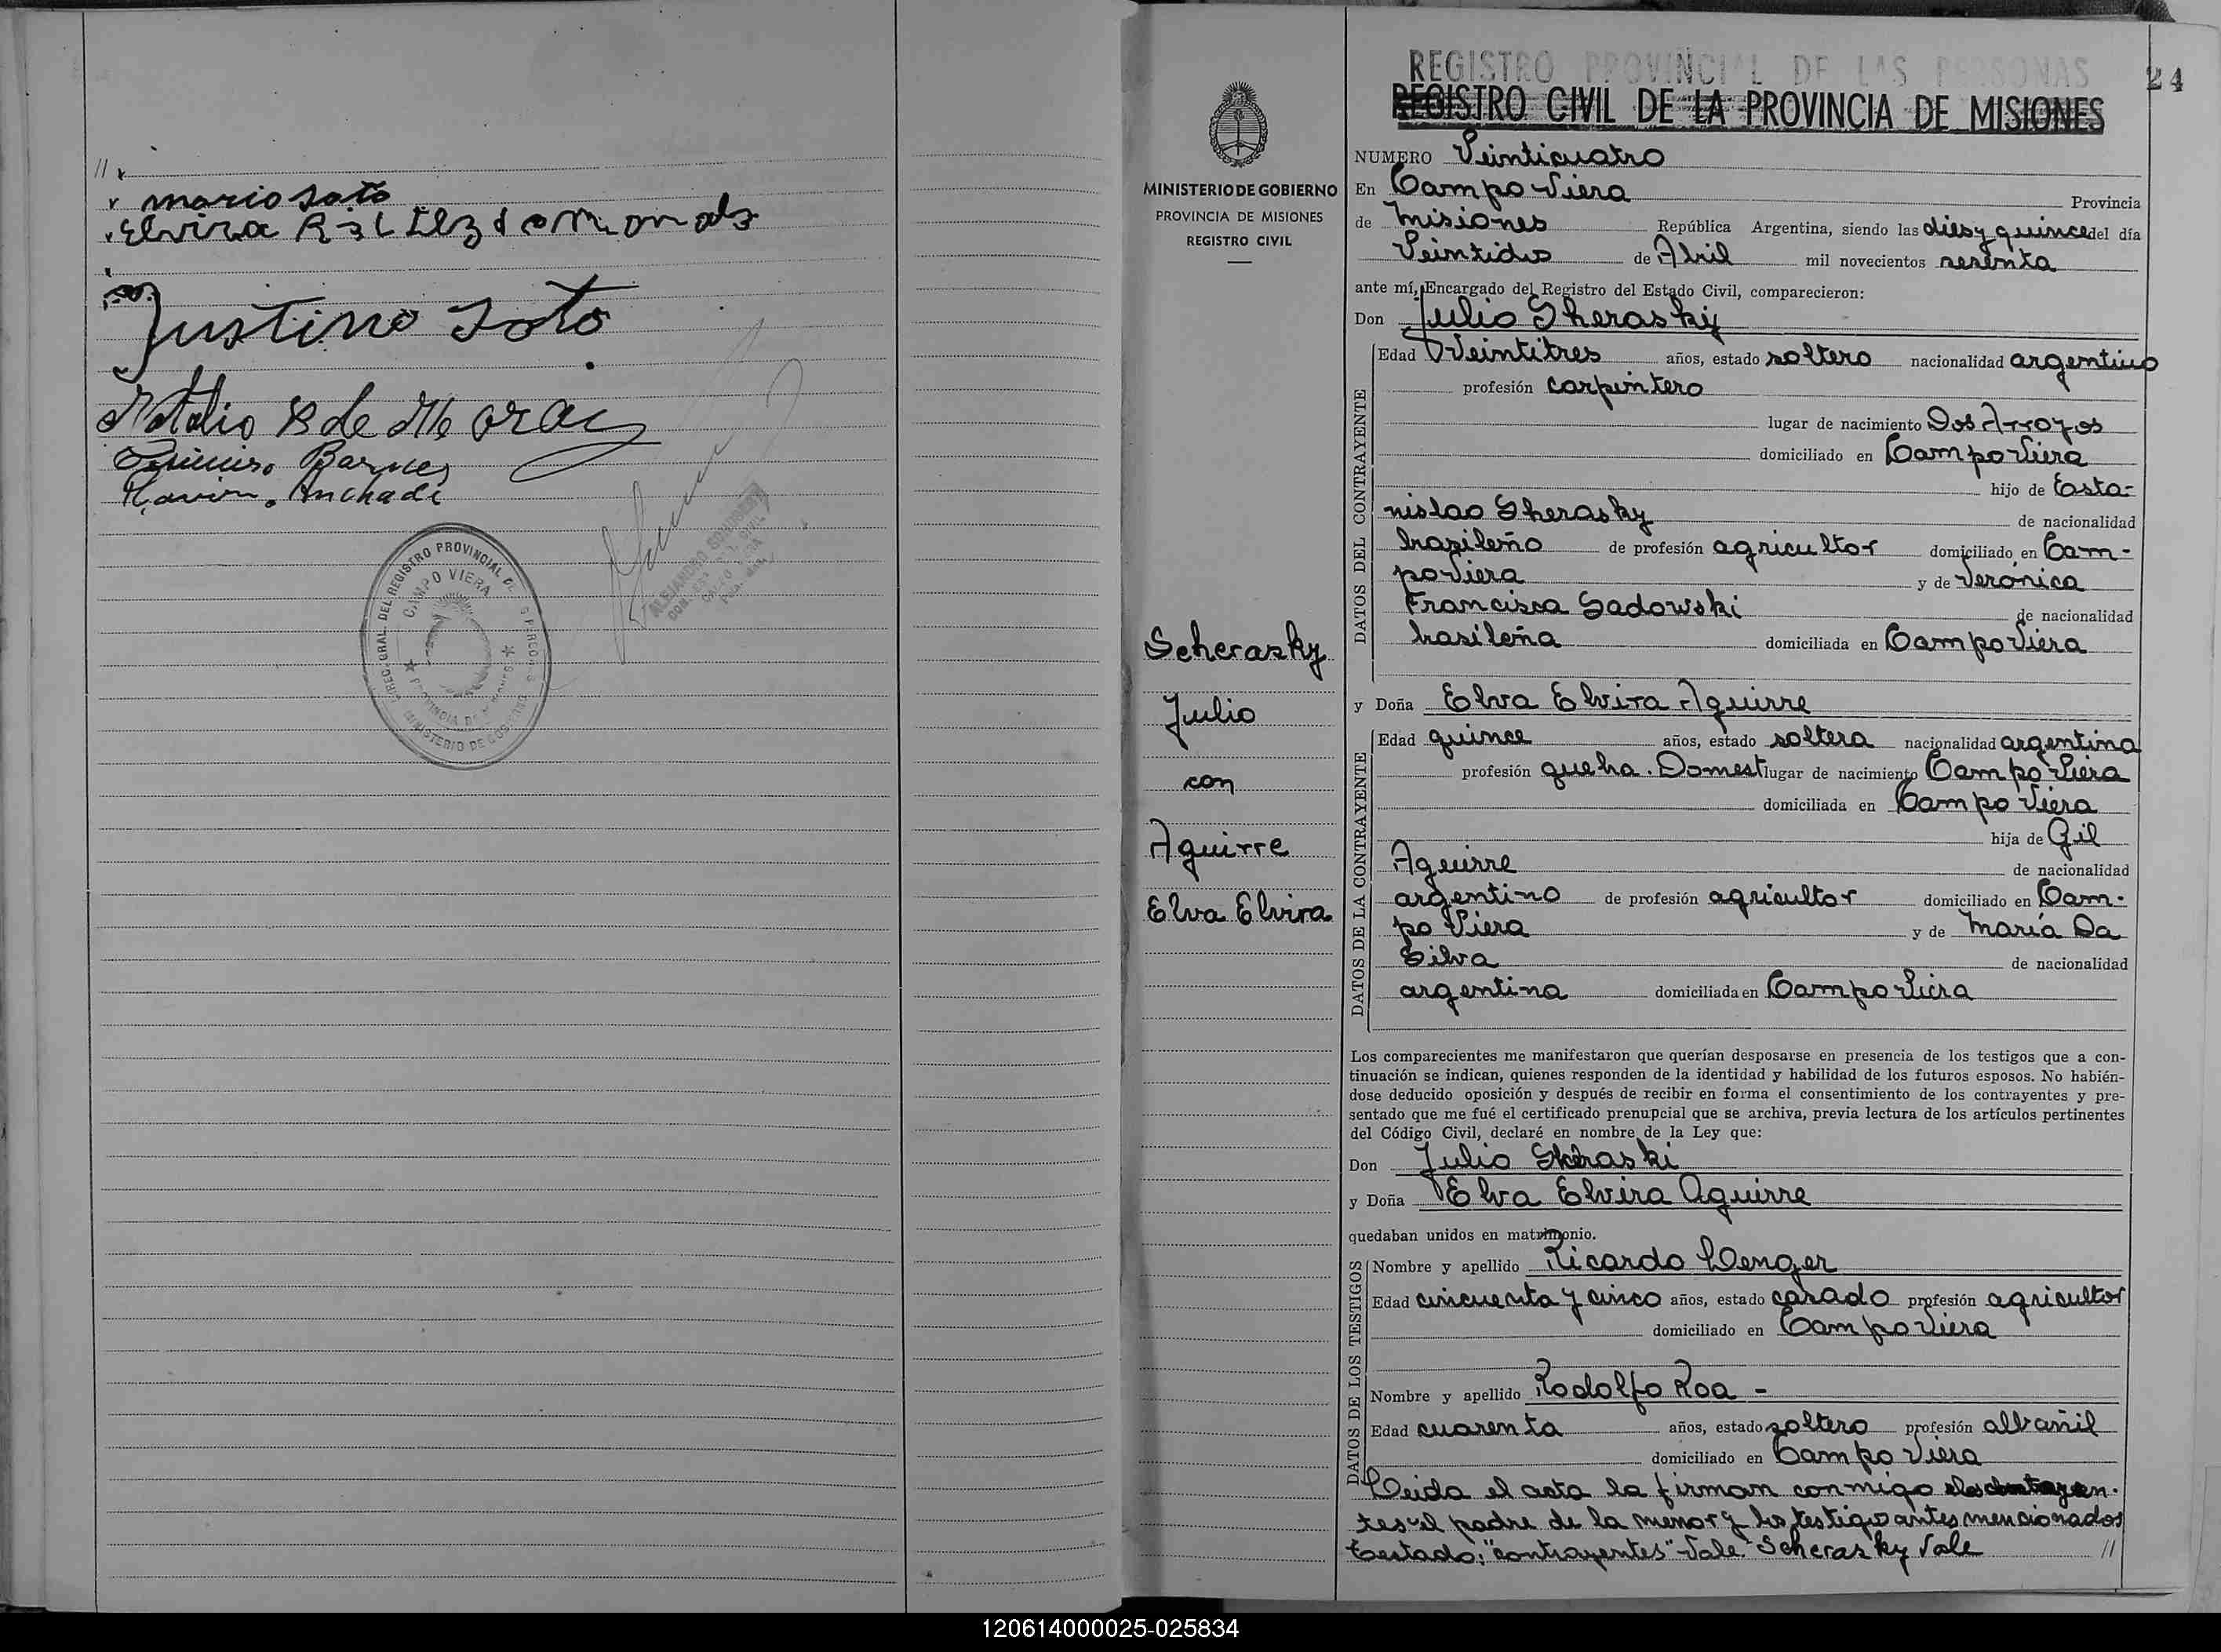 //
mario soto
Elvira
Justino Soto
Natalio B de
CAMPO VIERA
24
REGISTRO PROVINCIAL DE LAS PERSONAS
REGISTRO CIVIL DE LA PROVINCIA DE MISIONES
MINISTERIO DE GOBIERNO
PROVINCIA DE MISIONES
REGISTRO CIVIL
Scherasky
Julio
con
Aguirre
Elva Elvira
NUMERO Veinticuatro
En Campo Viera Provincia
de Misiones República Argentina, siendo las dies y quince del día
Veintidos de Abril mil novecientos sesenta
ante mí, Encargado del Registro del Estado Civil, comparecieron:
Don Julio Sherasky
DATOS DEL CONTRAYENTE
Edad Veintitres años, estado soltero nacionalidad argentino
profesión carpintero
lugar de nacimiento Dos Arroyos
domiciliado en Campo Viera
hijo de Esta-
nislao Sherasky de nacionalidad
brazileño de profesión agricultor domiciliado en Cam-
po Viera y de Verónica
Francisca Sadowski de nacionalidad
brasileña domiciliada en Campo Viera
y Doña Elva Elvira Aguirre
DATOS DE LA CONTRAYENTE
Edad quince años, estado soltera nacionalidad argentina
profesión queha. Domest lugar de nacimiento Campo Viera
domiciliada en Campo Viera
hija de Gil
Aguirre de nacionalidad
argentino de profesión agricultor domiciliado en Cam-
po Viera y de María Da
Silva de nacionalidad
argentina domiciliada en Campo Viera
Los comparecientes me manifestaron que querían desposarse en presencia de los testigos que a con-
tinuación se indican, quienes responden de la identidad y habilidad de los futuros esposos. No habién-
dose deducido oposición y después de recibir en forma el consentimiento de los contrayentes y pre-
sentado que me fué el certificado prenupcial que se archiva, previa lectura de los artículos pertinentes
del Código Civil, declaré en nombre de la Ley que:
Don Julio Sheraski
y Doña Elva Elvira Aguirre
quedaban unidos en matrimonio.
DATOS DE LOS TESTIGOS
Nombre y apellido Ricardo Wenger
Edad cincuenta y cinco años, estado casado profesión agricultor
domiciliado en Campo Viera
Nombre y apellido Rodolfo Roa -
Edad cuarenta años, estado soltero profesión albañil
domiciliado en Campo Viera
Leida el acta la firman conmigo los contrayen-
tes el padre de la menor y los testigos antes mencionados
Testado: "contrayentes" Vale. Scherasky Vale //
120614000025-025834